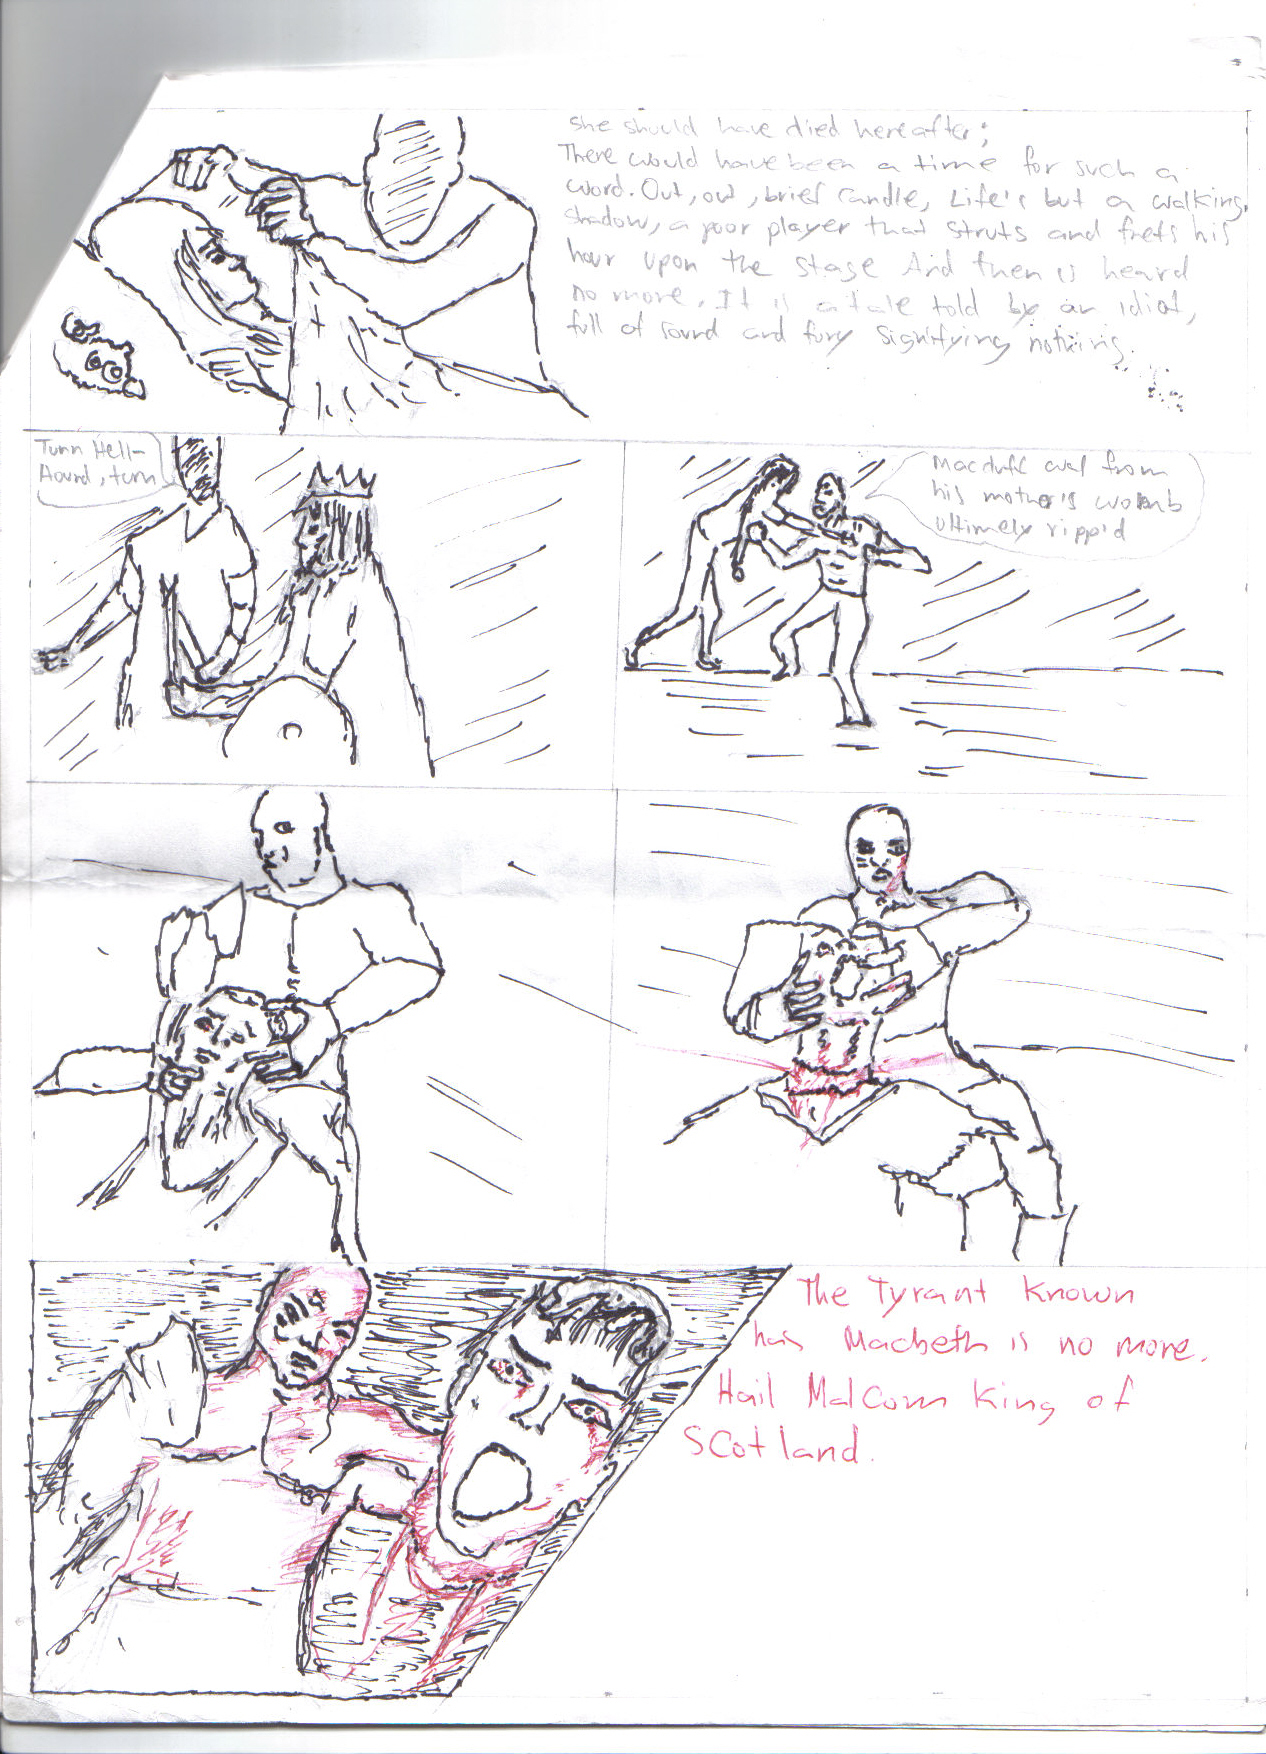 she should have died hereafter;
There would have been a time for such a
word. Out, out, brief candle, Life's but a walking
shadow, a poor player that struts and frets his
hour upon the stage And then is heard
no more. It is a tale told by an idiot,
full of sound and fury signifying nothing.
Turn Hell-
Hound, turn
Macduff was from
his mother's womb
ultimely ripp'd
The Tyrant Known
has Macbeth is no more.
Hail MalCom King of
SCotland.